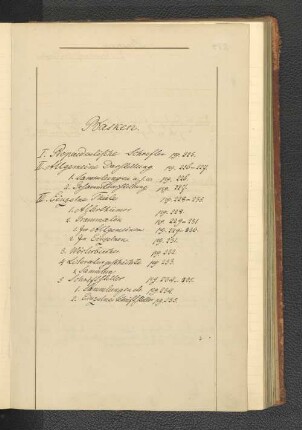 Basken.
I. Propaedeutische Schriften pg. 225.
II. Allgemeine Darstellung pg. 226-227.
1. Sammlungen u. s. w. pg. 226.
2. Gesammtdarstellung pg. 227.
III. Einzelne Theile pg. 228-235.
1. Alterthümer pg. 228.
2. Grammatik pg. 229-231.
1. im Allgemeinen pg. 229-230.
2. im Einzelnen pg. 231.
3. Wörterbücher pg. 232.
4. Literaturgeschichte pg. 233.
5. Schriftsteller pg. 234-235.
1. Sammlungen pg. 234.
2. Einzelne Schriftsteller pg. 235.